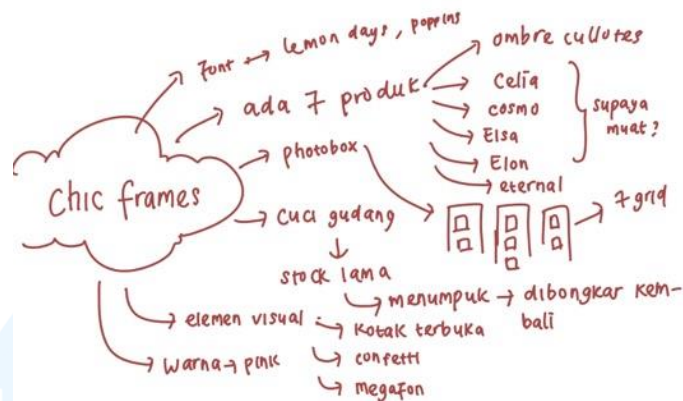 font → lemon days, poppins
ada 7 produk
ombre cullotes
Celia
cosmo
Elsa
Elon
eternal
supaya
muat?
chic frames
photobox
7 grid
cuci gudang
stock lama
menumpuk → dibongkar kem-
bali
elemen visual
kotak terbuka
confetti
megafon
warna → pink